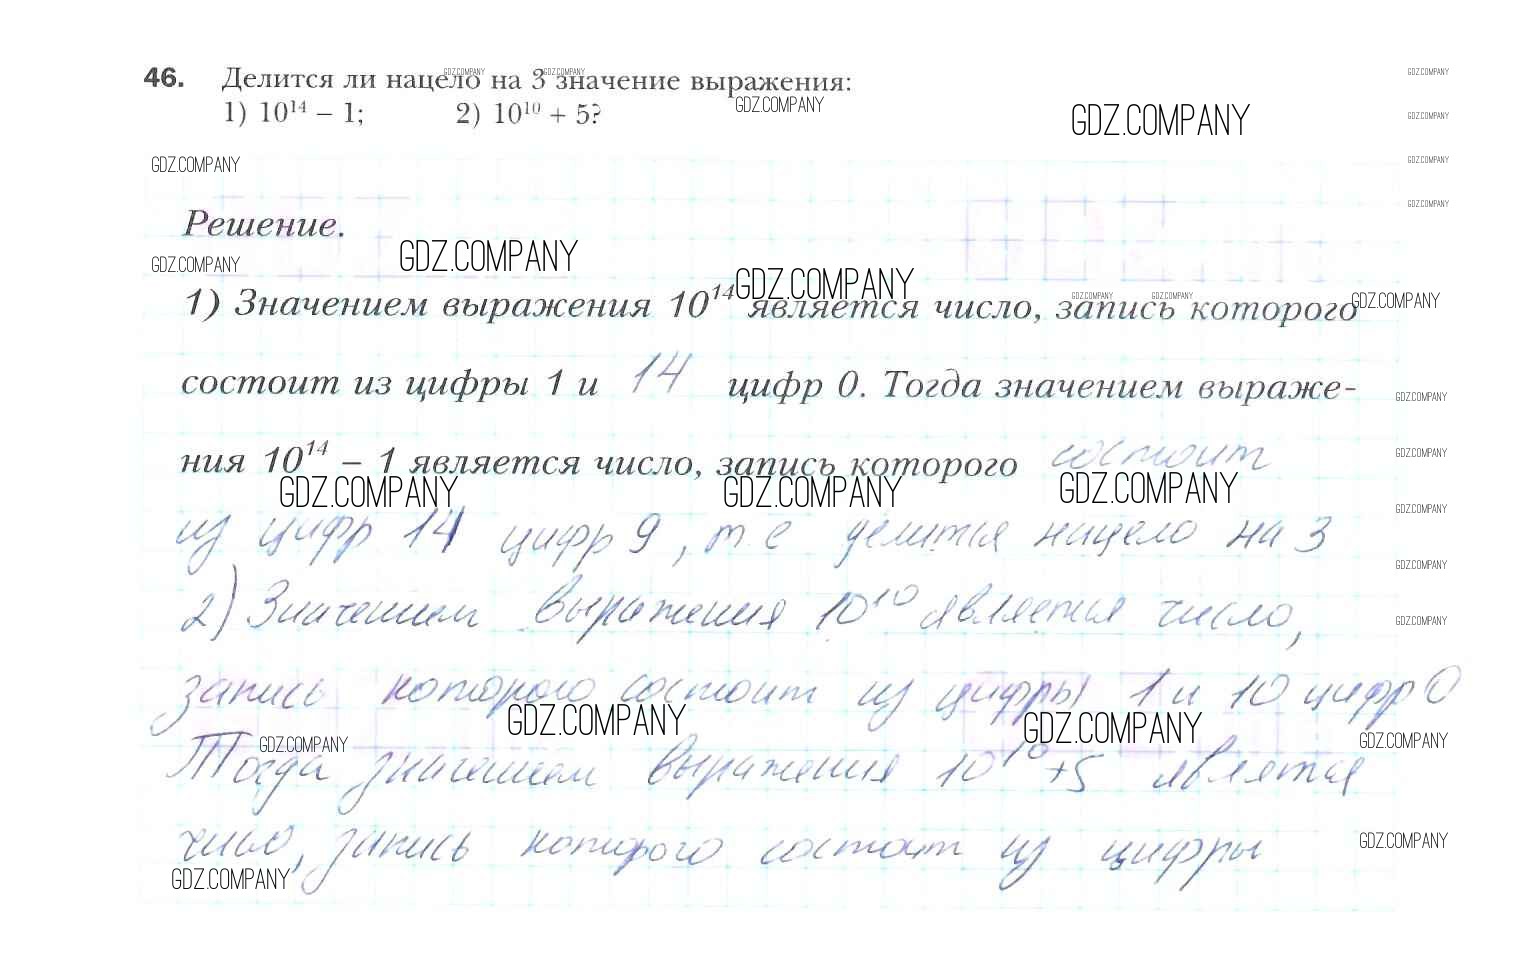 46. Делится ли нацело на 3 значение выражения:
1) 10¹⁴ – 1; 2) 10¹⁰ + 5?
Решение.
1) Значением выражения 10¹⁴ является число, запись которого
состоит из цифры 1 и 14 цифр 0. Тогда значением выраже-
ния 10¹⁴ – 1 является число, запись которого состоит
из цифр 14 цифр 9, т. е делится нацело на 3
2) Значением выражения 10¹⁰ является число,
запись которого состоит из цифры 1 и 10 цифр 0
Тогда значением выражения 10¹⁰ +5 является
число, запись которого состоит из цифры
GDZ.COMPANY